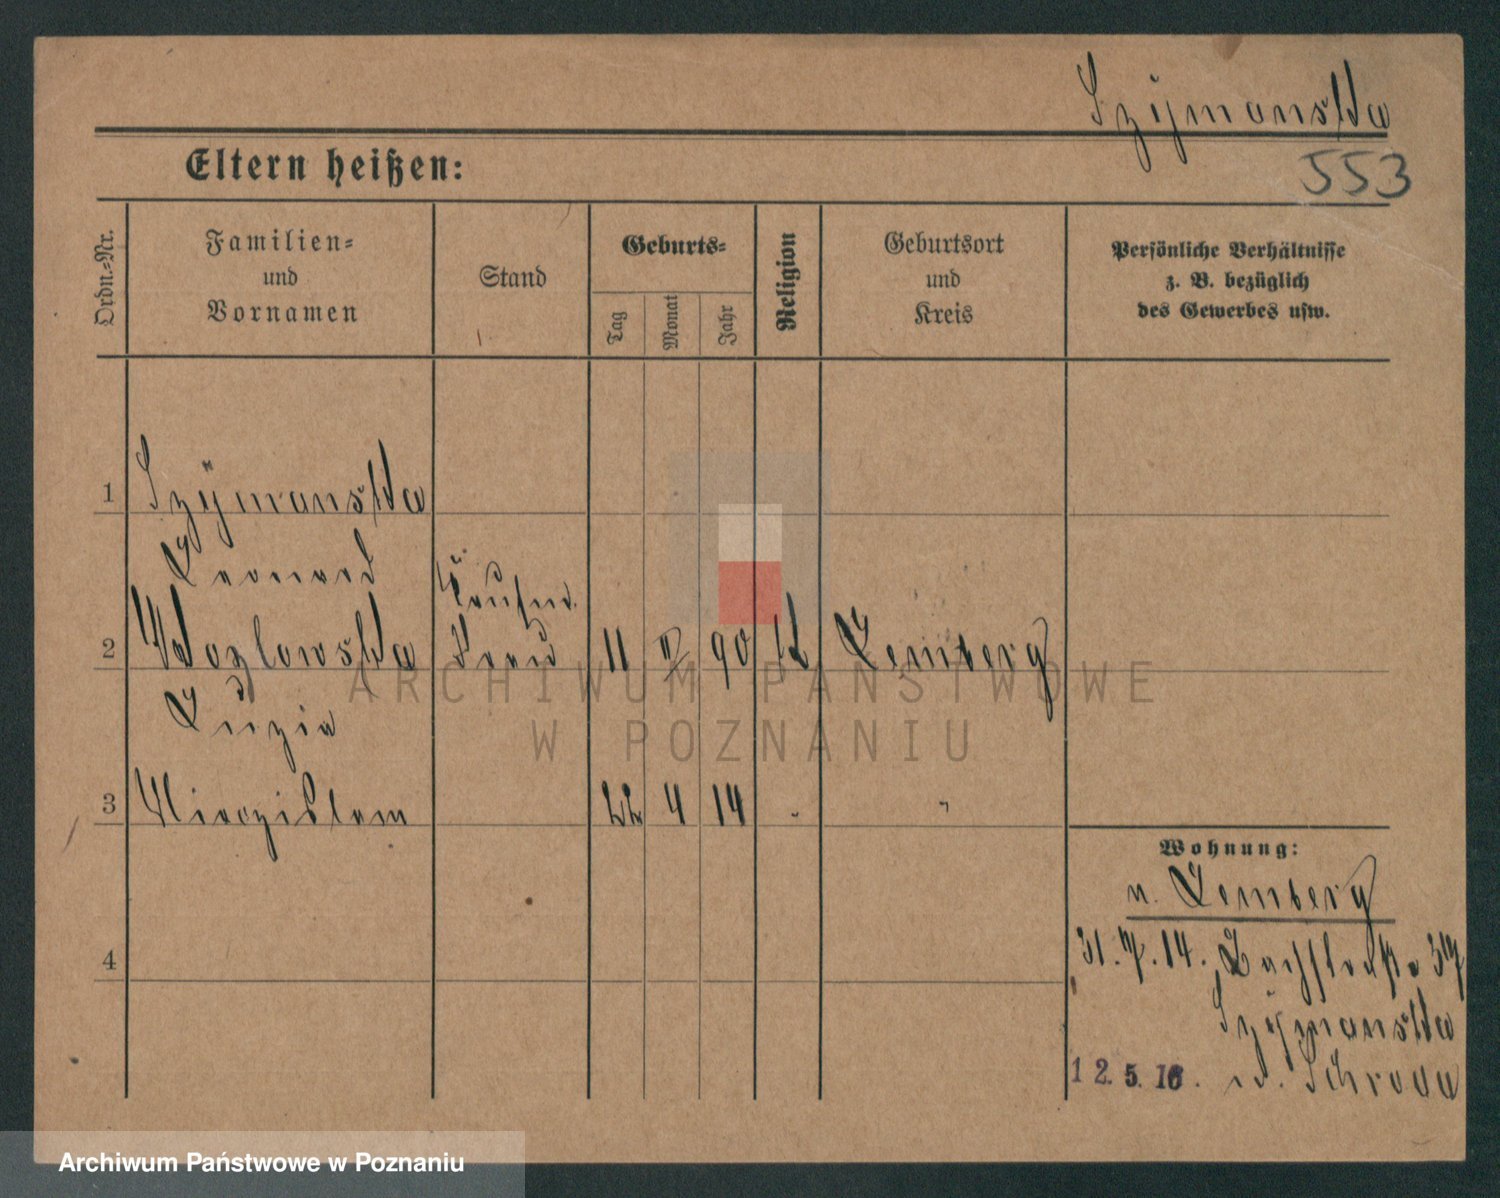 Szymanska
553
Eltern heißen:
Ordn.=Nr.
Familien=
und
Vornamen
Stand
Geburts=
Tag
Monat
Jahr
Religion
Geburtsort
und
Kreis
Persönliche Verhältnisse
z. B. bezüglich
des Gewerbes usw.
1 Szymanska
Leonard
Kaufm.
2 Frau 11 II 90 k Lemberg
Luzia
3 Mieczislaw 22 4 14 " "
4
Wohnung:
n. Lemberg
31. 7. 14.
Szymanska
12.5.16. n. Schroda
ARCHIWUM PAŃSTWOWE
W POZNANIU
Archiwum Państwowe w Poznaniu